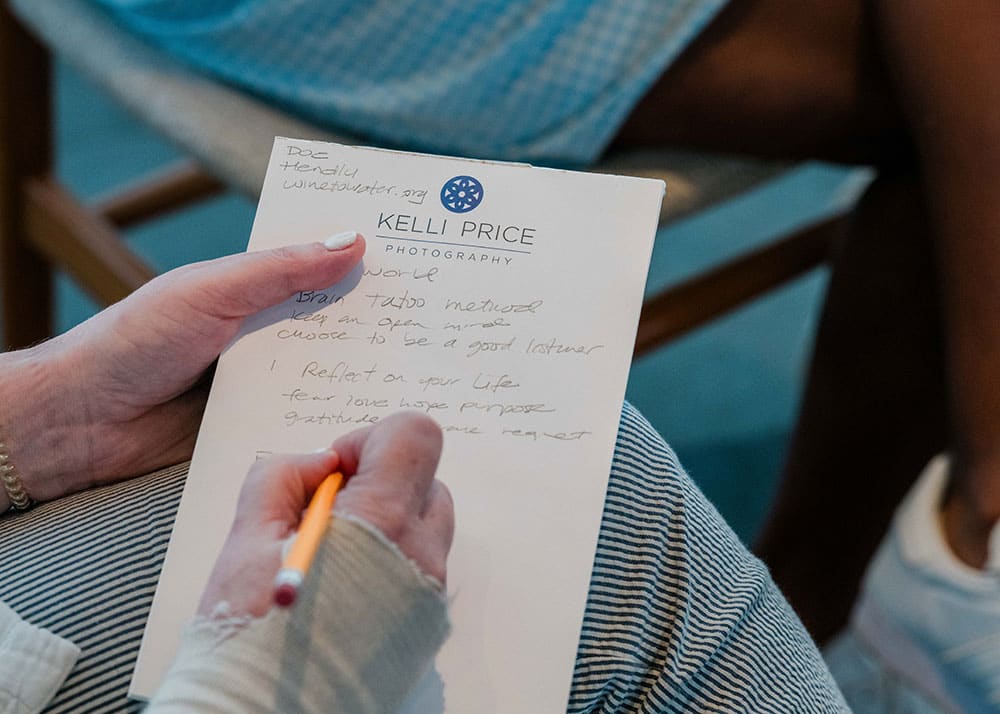 Doc
Hendley
winetowater.org
KELLI PRICE
PHOTOGRAPHY
work
Brain Tatoo method
keep an open mind
choose to be a good listner
1 Reflect on your Life
fear love hope purpose
gratitude request